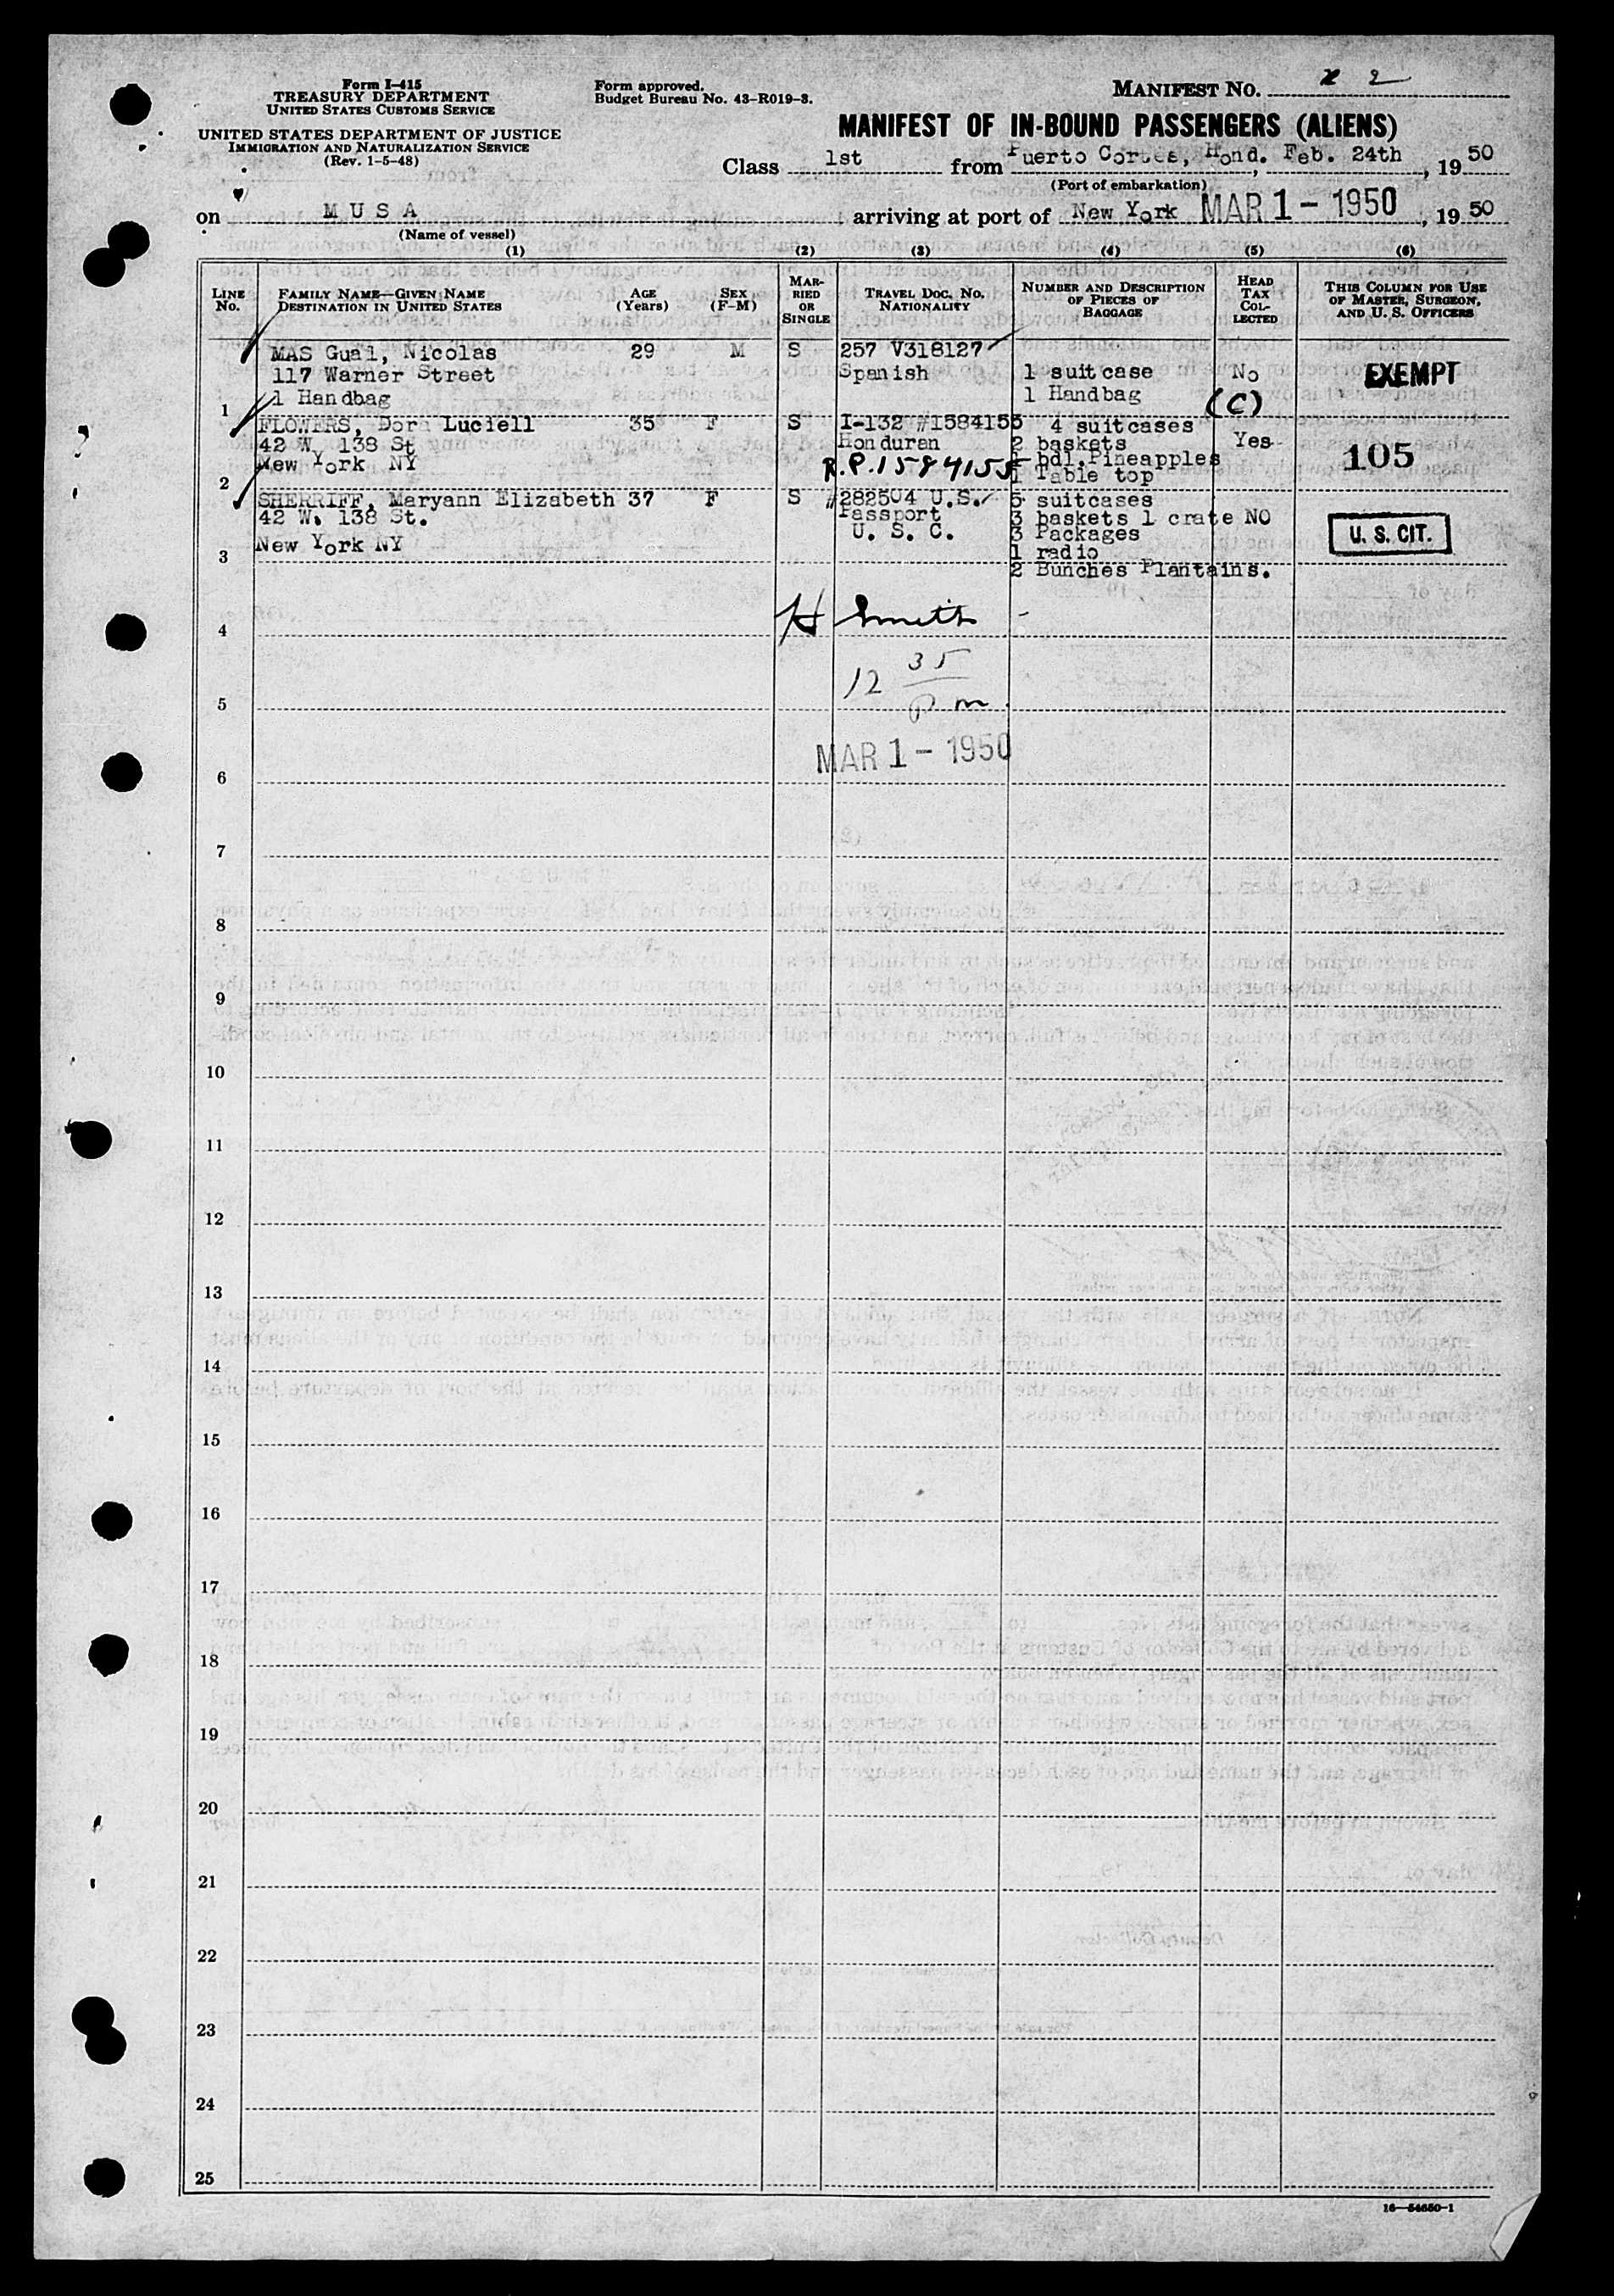 Form I-415
TREASURY DEPARTMENT
UNITED STATES CUSTOMS SERVICE
UNITED STATES DEPARTMENT OF JUSTICE
IMMIGRATION AND NATURALIZATION SERVICE
(Rev. 1-5-48)
Form approved.
Budget Bureau No. 43-R019-3.
MANIFEST No. 2
MANIFEST OF IN-BOUND PASSENGERS (ALIENS)
Class 1st from Puerto Cortes, Hond. Feb. 24th, 19 50
(Port of embarkation)
on M U S A arriving at port of New York MAR 1 - 1950, 19 50
(Name of vessel)
(1) (2) (3) (4) (5) (6)
LINE No. FAMILY NAME—GIVEN NAME DESTINATION IN UNITED STATES AGE (Years) SEX (F-M) MARRIED OR SINGLE TRAVEL DOC. NO. NATIONALITY NUMBER AND DESCRIPTION OF PIECES OF BAGGAGE HEAD TAX COLLECTED THIS COLUMN FOR USE OF MASTER, SURGEON, AND U. S. OFFICERS
MAS Gual, Nicolas 29 M S 257 V318127
117 Warner Street Spanish 1 suitcase No EXEMPT
1 1 Handbag 1 Handbag (C)
FLOWERS, Dora Luciell 35 F S I-132 #1584155 4 suitcases
42 W. 138 St Honduran 2 baskets Yes 105
New York NY R.P. 1584155 bdl. Pineapples
2 1 Table top
SHERRIFF, Maryann Elizabeth 37 F S #282504 U.S. 5 suitcases
42 W. 138 St. Passport 3 baskets 1 crate NO U. S. CIT.
U. S. C. 3 Packages
New York NY
3 1 radio
2 Bunches Plantains.
H Smith
4
12 35 P m.
5
MAR 1 - 1950
6
7
8
9
10
11
12
13
14
15
16
17
18
19
20
21
22
23
24
25
16—54650-1